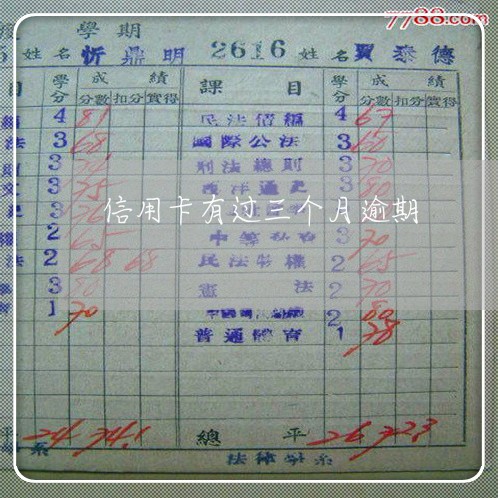 7788.com
學期
5 姓名 忻鼎明 2616 姓名 賈泰德
目 學分 成績 課目 學分 成績
分數 扣分 實得 分數 扣分 實得
4 81 民法債編 4 67
法 3 68 國際公法 3 60
3 刑法總則 3 70
3 75 西洋通史 3 80
3 76
信用卡有过三个月逾期
權 2 65 3 70
法 2 68 68 民法物權 2 65
3 80 憲法 2 70
1 70 2 80
普通體育 1 78
平 24 74.1 總平 26 72.3
系 法律學系